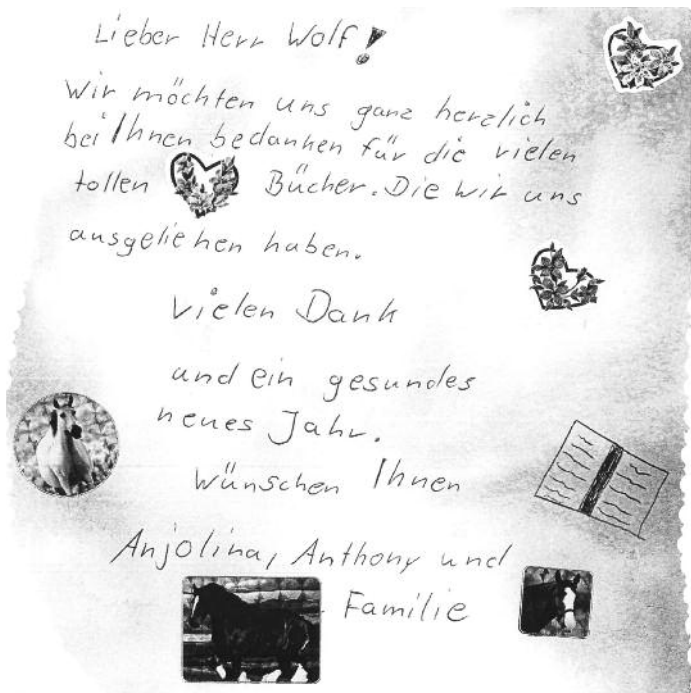 Lieber Herr Wolf!
Wir möchten uns ganz herzlich
bei Ihnen bedanken für die vielen
tollen Bücher. Die wir uns
ausgeliehen haben.
Vielen Dank
und ein gesundes
neues Jahr.
Wünschen Ihnen
Anjolina, Anthony und
Familie